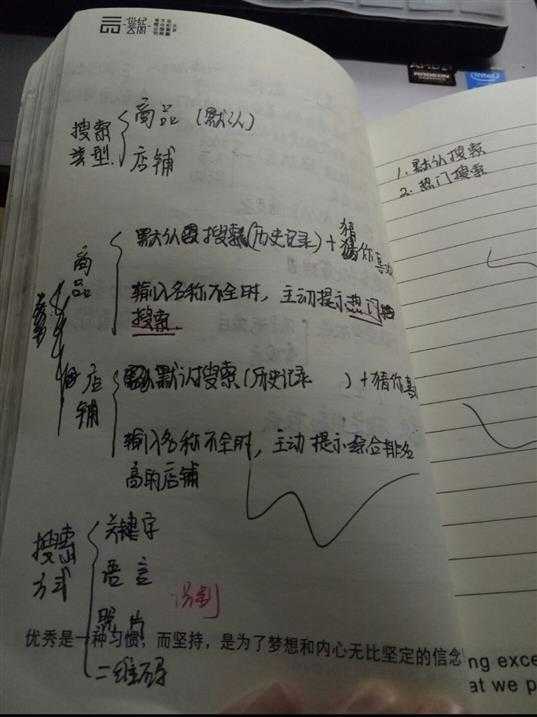 搜索
类型
商品 (默认)
店铺
商
品
默认搜索(历史记录) + 猜你喜
输入名称不全时，主动提示热门搜
搜索.
店
铺
默认搜索(历史记录 ) + 猜你喜
输入名称不全时，主动提示综合排名
高的店铺
搜索
方式
关键字
语言
照片
二维码
优秀是一种习惯，而坚持，是为了梦想和内心无比坚定的信念
1. 默认搜索
2. 热门搜索
ng exce
at we p
AMD
RADEON
intel